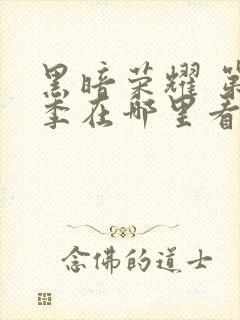 黑暗荣耀 第
季在哪里看
念佛的道士